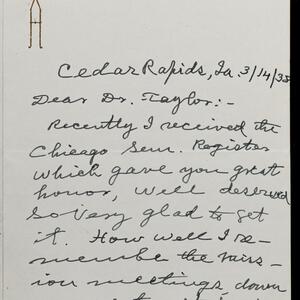 Cedar Rapids, Ia. 3/14/35
Dear Dr. Taylor:-
Recently I received the
Chicago Sem. Register
which gave you great
honor, well deserved
So very glad to get
it. How well I re-
membe the miss-
ion meetings, down